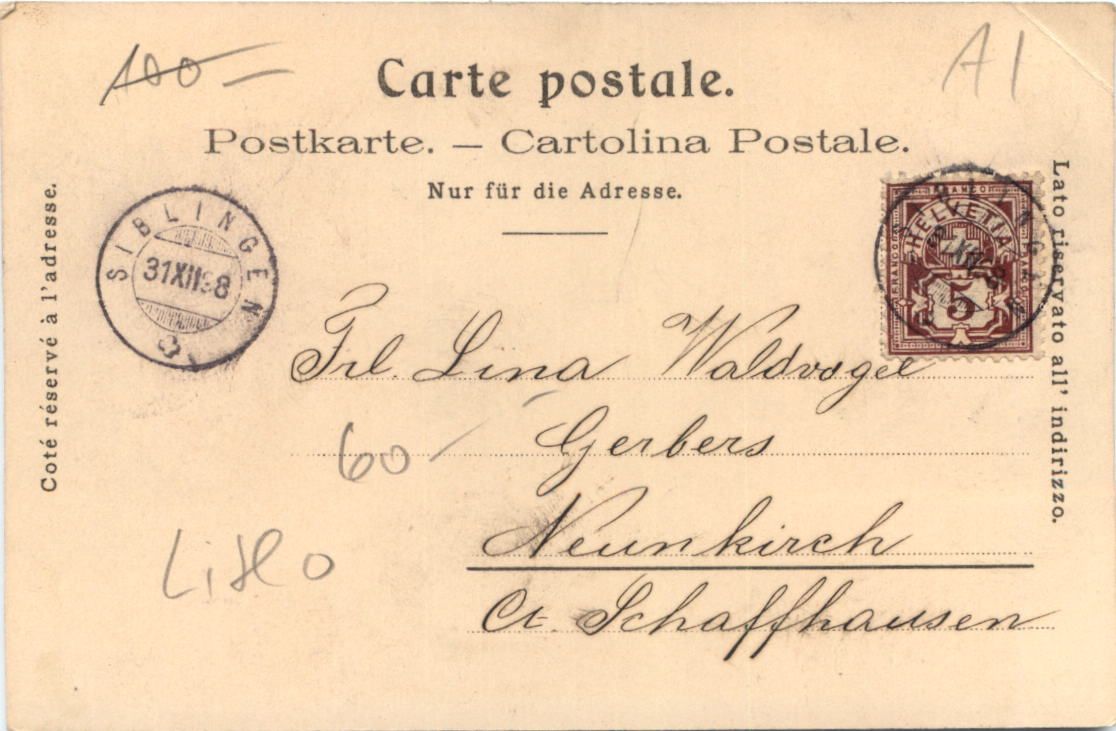 100 —
A1
Carte postale.
Postkarte. — Cartolina Postale.
Nur für die Adresse.
Coté réservé à l'adresse.
Lato riservato all' indirizzo.
SIBLINGEN
31 XII 98
FRANCO
HELVETIA
5
Frl. Lina Waldvogel
Gerbers
60 —
Neunkirch
Litho
Ct. Schaffhausen